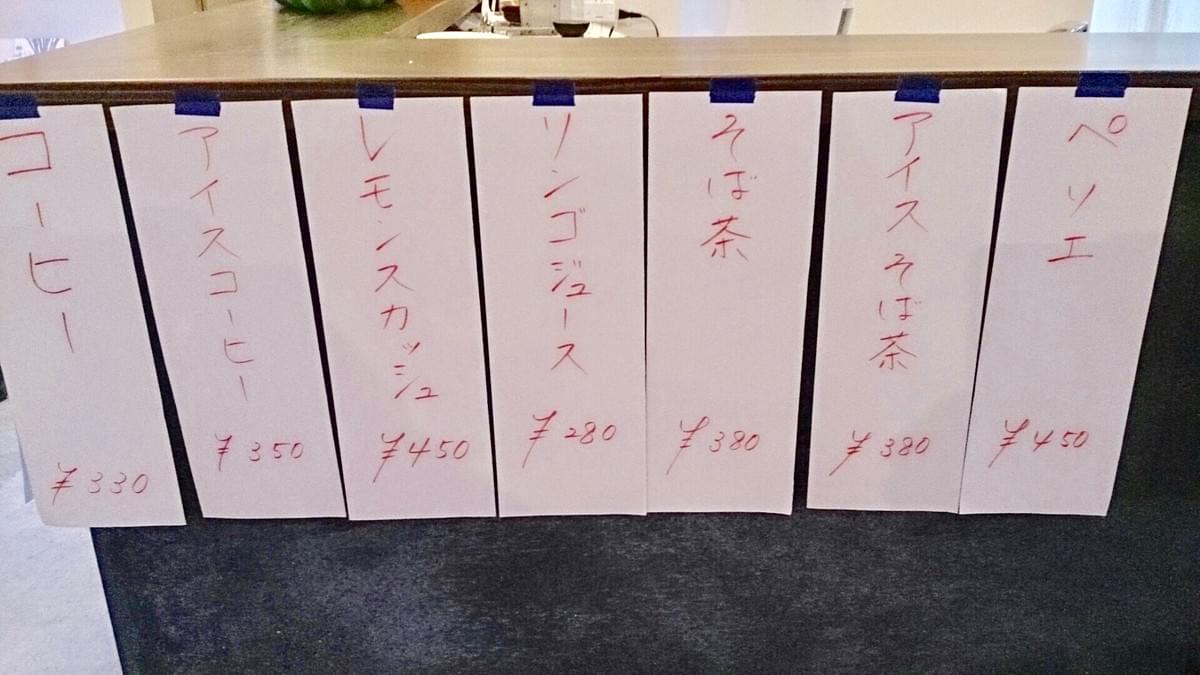 ペリエ
¥450
アイスそば茶
¥380
そば茶
¥380
リンゴジュース
¥280
レモンスカッシュ
¥450
アイスコーヒー
¥350
コーヒー
¥330